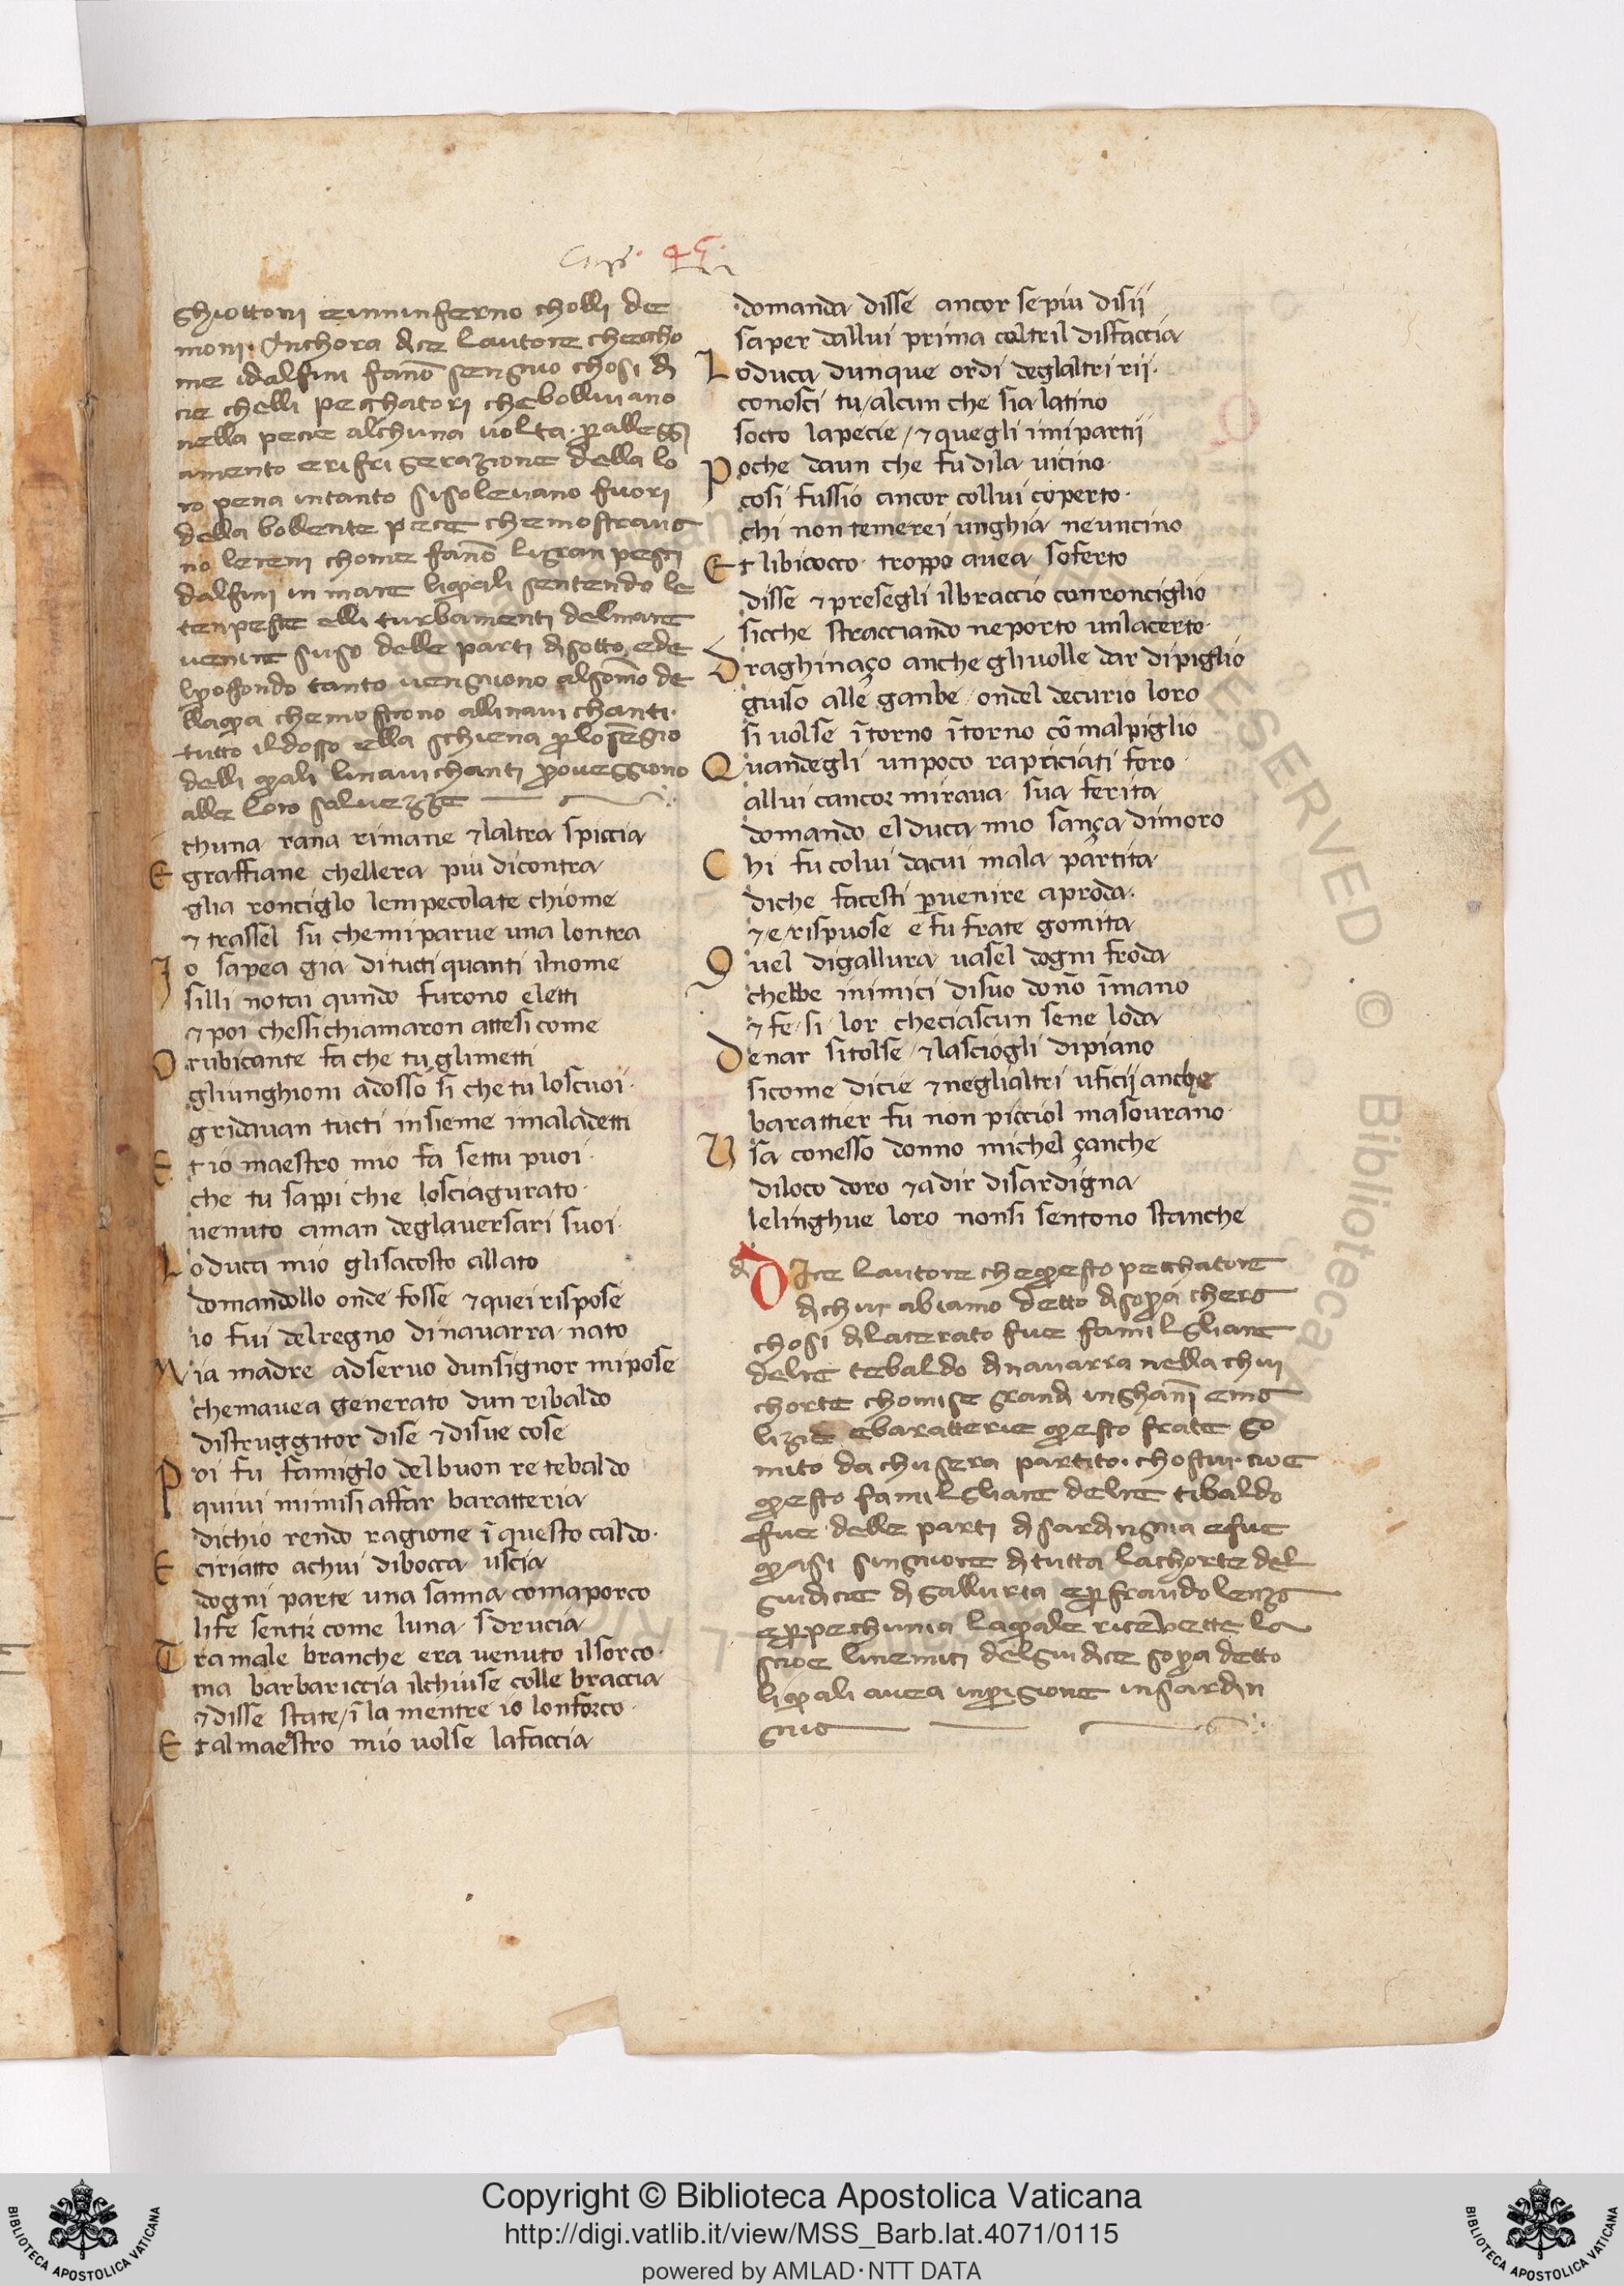 Capi. 45.
ghiottoni eunninferno cholli de
moni. Anchora dice lautore checcho
me idalfini fanō sengnio chosi di
cie chelli pecchatori chebollivano
nella pecie alchuna volta. p allegg
iamento erifrigerazione della lo
ro pena intanto sisolevano fuori
della bollente pece chemostrava
no lereni chome fanō ligran pesci
dalfini in mare liquali sentendo le
tenpeste elli turbamenti delmare
venire suso delle parti disotto, ede
lpofondo tanto vengniono alsomō de
llaqua chemostrono allinavichanti.
tutto il dosso ella schiena plo sēgnio
delli quali linavichanti proveggiono
alle loro salvezze
chuna rana rimane ⁊ laltra spiccia
E graffiane chellera piu dicontra
glia ronciglo lempecolate chiome
⁊ trassel su chemiparve una lontra
Io sapea gia ditucti quanti ilnome
silli notai qundo furono eletti
⁊ poi chessichiamaron attesi come
O rubicante fa che tu glimetti
gliunghioni adosso si che tu loscuoi.
gridavan tucti insieme imaladetti
Et io maestro mio fa settu puoi.
che tu sappi chie losciagurato.
venuto aman deglaversari suoi.
Lo duca mio glisacosto allato
domandollo onde fosse ⁊ quei rispose
io fui delregno dinavarra nato
Mia madre adservo dunsignor mipose
chemavea generato dun ribaldo
distruggitor dise ⁊ disue cose
Poi fu famiglo delbuon re tebaldo
quivi mimisi affar baratteria
dichio rendo ragione ī questo caldo.
E ciriatto achui dibocca uscia
dogni parte una sanna comaporco
life sentir come luna sdrucia
Tra male branche era venuto ilsorco.
ma barbariccia ilchiuse colle braccia
⁊ disse state, ī la mentre io lonforco.
Et almaestro mio volse lafaccia
domanda disse ancor sepiu disii
saper dallui prima caltril disfaccia
Lo duca dunque ordi deglaltri rii.
conosci tu, alcun che sia latino
socto lapecie, ⁊ quegli imipartii
Poche daun che fu dila vicino.
cosi fussio ancor collui coperto.
chi non temerei unghia neuncino
Et libicocco. troppo avea soferto
disse ⁊ presegli ilbraccio conronciglio
sicche stracciando neporto unlacerto.
Draghinaço anche glivolle dar dipiglio
guiso alle ganbe, ondel decurio loro
si volse ītorno ītorno cō malpiglio
Quandegli unpoco rapaciati foro.
allui cancor mirava sua ferita.
domando el duca mio sança dimoro
Chi fu colui dacui mala partita.
diche facesti pvenire aproda.
⁊ e, rispuose e fu frate gomita
Quel digallura vasel dogni froda
chebbe inimici disuo donō īmano
⁊ fe, si lor checiascun sene loda
Denar sitolse, ⁊ lasciogli dipiano
sicome dicie ⁊ neglialtri uficii anche
barattier fu non picciol masovrano.
Usa conesso donno michel çanche
diloco doro ⁊ adir disardigna
lelinghue loro nonsi sentono stanche
d
DIce lautore chequesto pecchatore
dichui abiamo detto disopra chera
chosi dilacerato fue familgliare
delre tebaldo dinavarra nella chui
chorte chomise grandi inghāni ema
lizie ebaratterie questo frate go
mito da chusera partito. chostui cioe
questo familgliare delre tibaldo
fue delle parti disardingnia efue
quasi singniore ditutta lachorte del
giudice di galluria epfraudolenza
eppechunia laquale ricēvette la
scioe linemici delgiudice sopra detto
liquali avea inprigione insardin
gnia